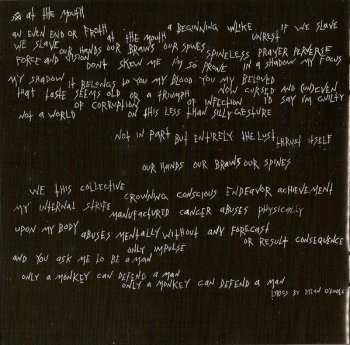 at the mouth
an even end or froth at the mouth a beginning unlike unrest if we slave
we slave our hands our brains our spines spineless prayer perverse
force and vision don't skew me I'm so prone in a shadow my focus
my shadow it belongs to you my blood you my beloved
that taste seems old or a triumph now cursed and (un)even
of corruption of infection to say I'm guilty
not a world on this less than silly gesture
not in part but entirely the lust thrust itself
our hands our brains our spines
we this collective crowning conscious endeavor achievement
my internal strife manufactured cancer abuses physically
upon my body abuses mentally without any forecast
only impulse or result consequence
and you ask me to be a man
only a monkey can defend a man
only a monkey can defend a man
lyrics by